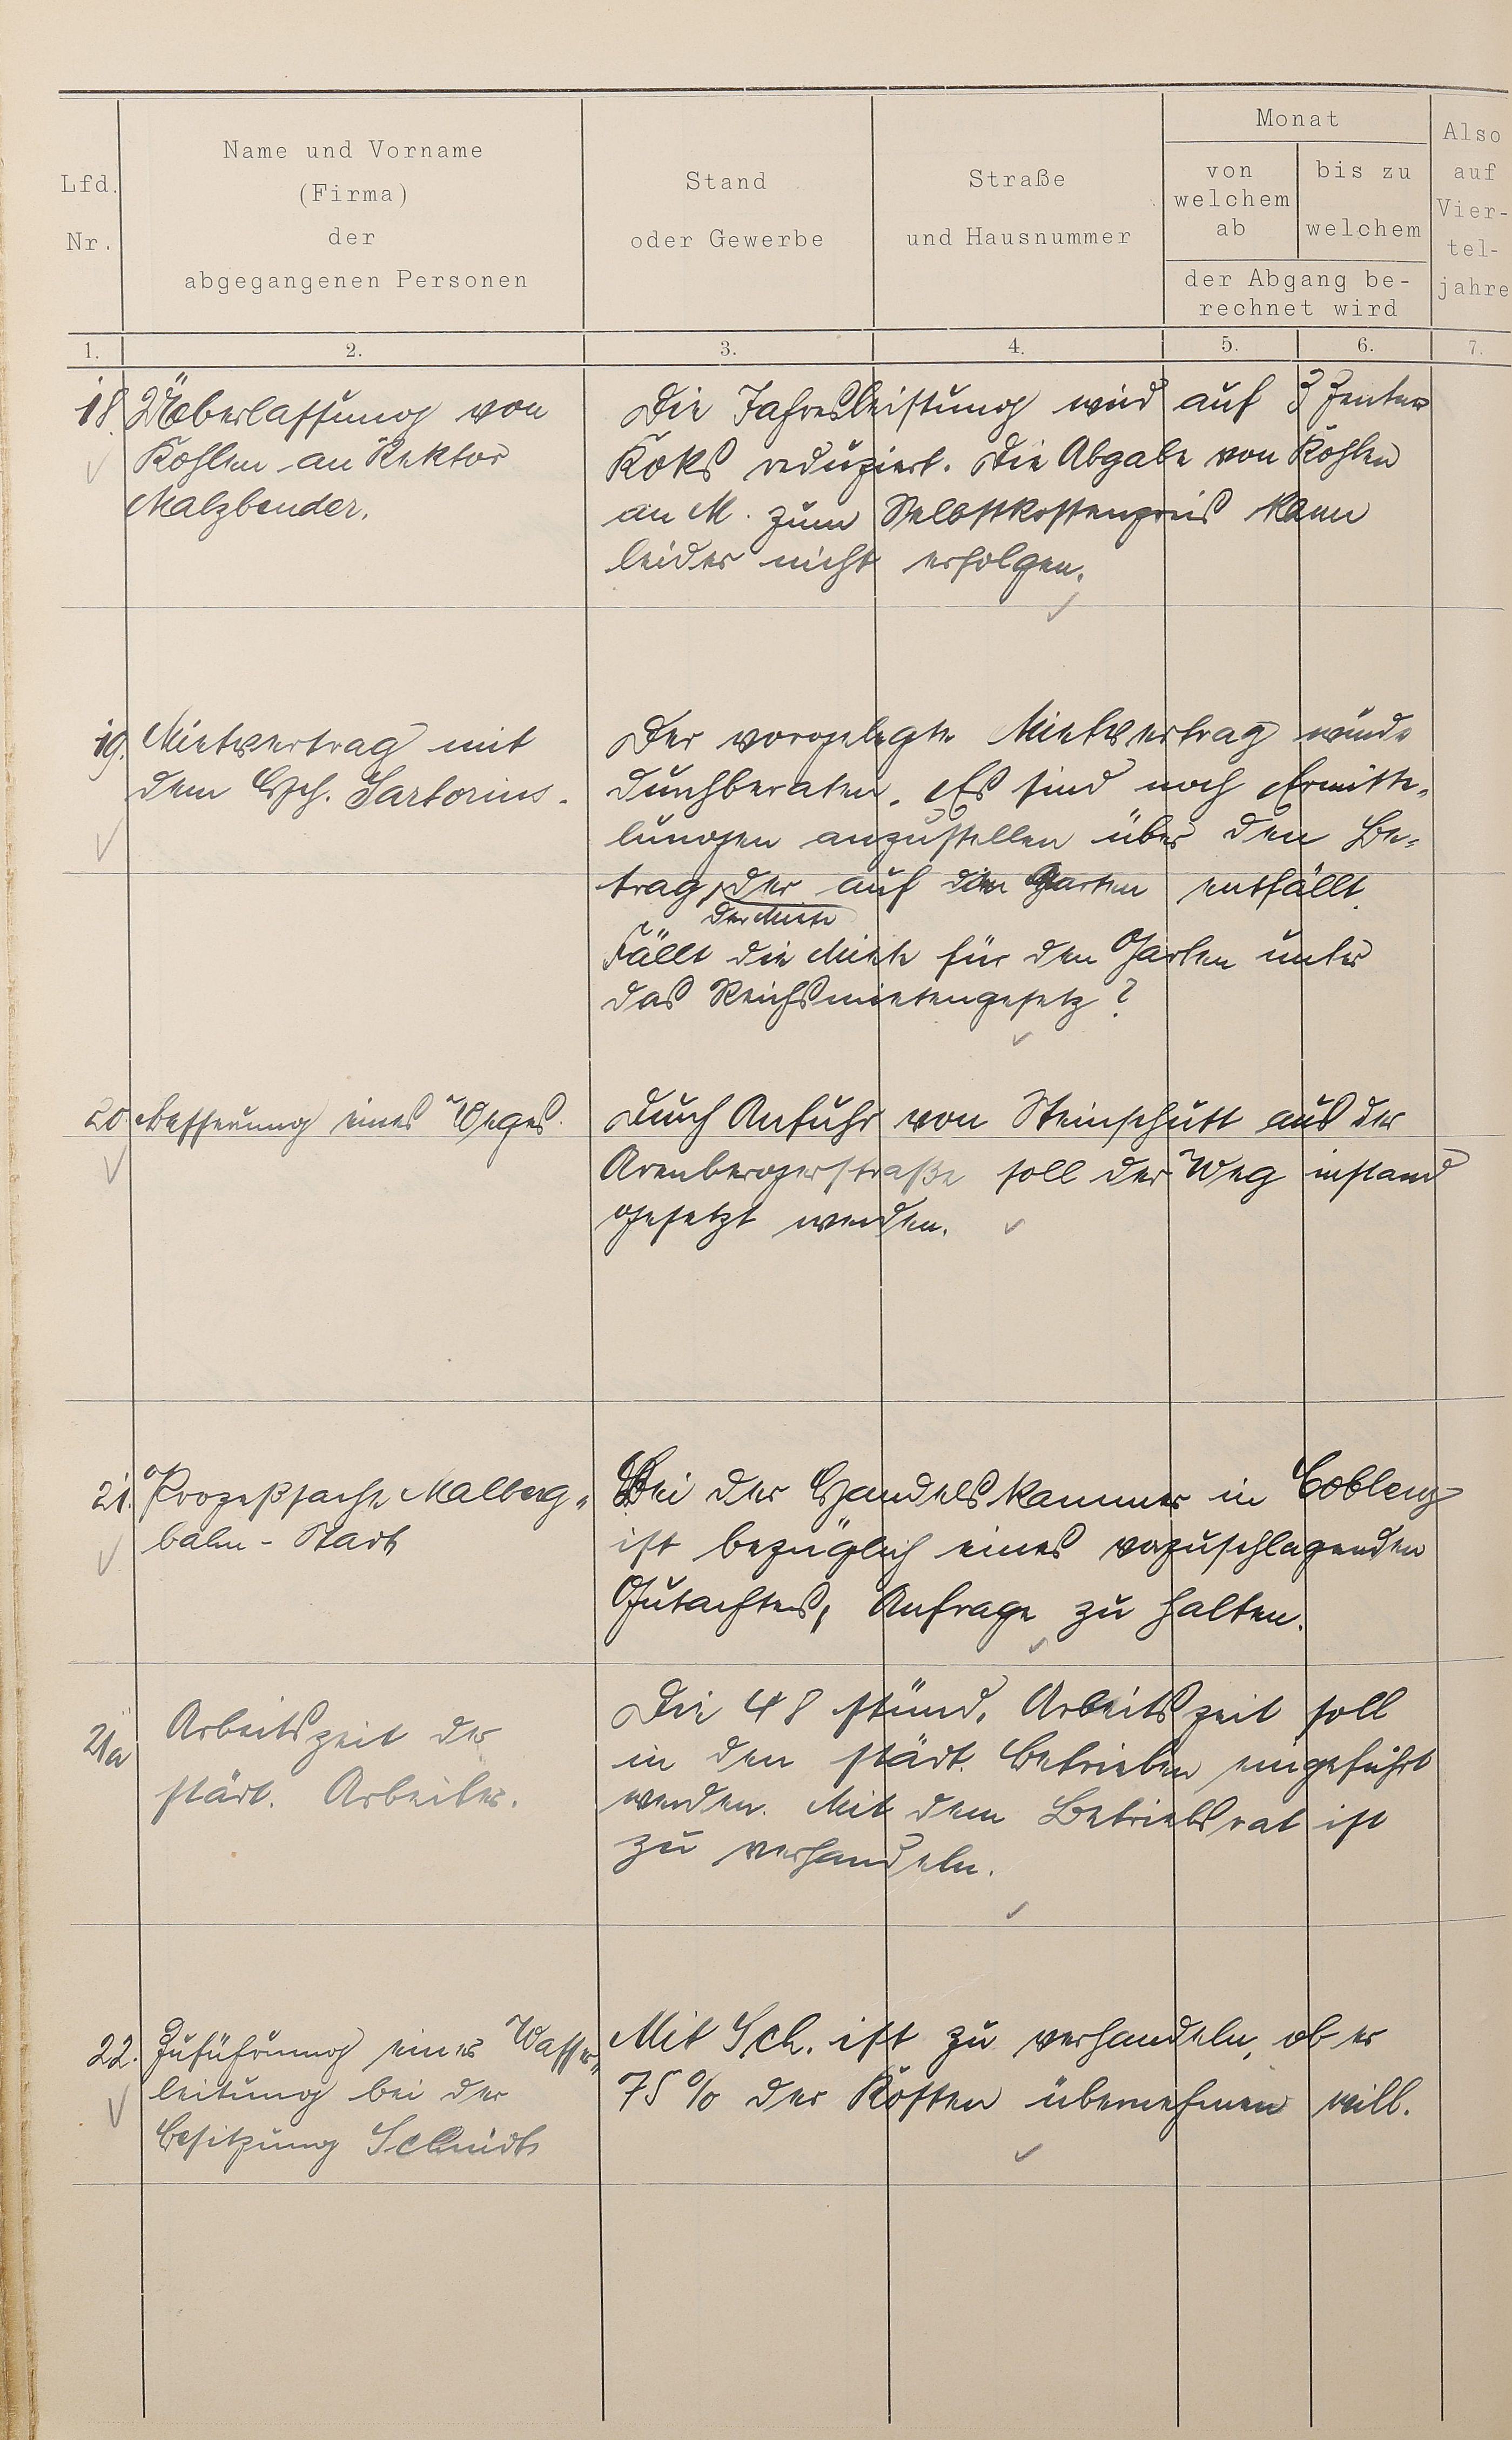 Lfd. Nr.
Name und Vorname
(Firma)
der
abgegangenen Personen
Stand
oder Gewerbe
Straße
und Hausnummer
Monat
von
welchem
ab
bis zu
welchem
der Abgang be-
rechnet wird
Also
auf
Vier-
tel-
jahre
1. 2. 3. 4. 5. 6. 7.
18. Überlassung von
Kohlen an Rektor
Malzbender.
Die Jahresleistung wird auf 3 Zentner
Koks reduziert. Die Abgabe von Kohlen
an M. zum Selbstkostenpreis kann
leider nicht erfolgen.
19. Mietvertrag mit
dem Sartorius.
Der vorgelegte Mietvertrag wurde
durchberaten. Es sind noch Ermitte-
lungen anzustellen über den Be-
trag, der auf den Garten entfällt.
der Miete
Fällt die Miete für den Garten unter
das Reichsmietengesetz?
20. Besserung eines Weges.
Durch Anfuhr von Steinschutt aus der
Arenbergerstraße soll der Weg instand
gesetzt werden.
21. Prozeßsache Malberg-
bahn - Stadt
Bei der Handelskammer in Coblenz
ist bezüglich eines vorzuschlagenden
Gutachters, Anfrage zu halten.
21a Arbeitszeit der
städt. Arbeiter.
Die 48 stünd. Arbeitszeit soll
in den städt. Betrieben eingeführt
werden. Mit dem Betriebsrat ist
zu verhandeln.
22. Zuführung einer Wasser-
leitung bei der
Besitzung Schmidt
Mit Sch. ist zu verhandeln, ob er
75 % der Kosten übernehmen will.